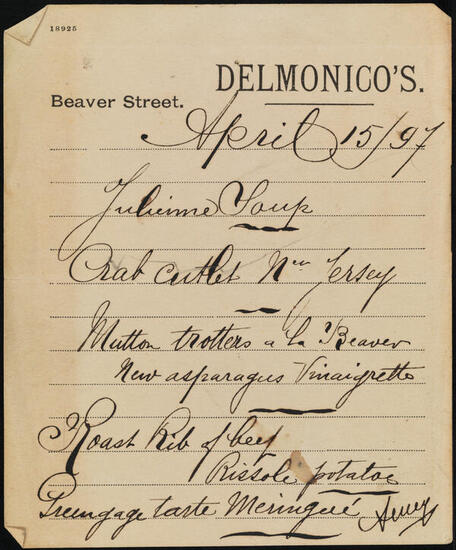 18925
DELMONICO'S.
Beaver Street.
April 15/97
Julienne Soup
Crab cutlet New Jersey
Mutton trotters a La Beaver
New asparagus Vinaigrette
Roast Rib of beef
Rissole potatoe
Greengage tarte Meringué